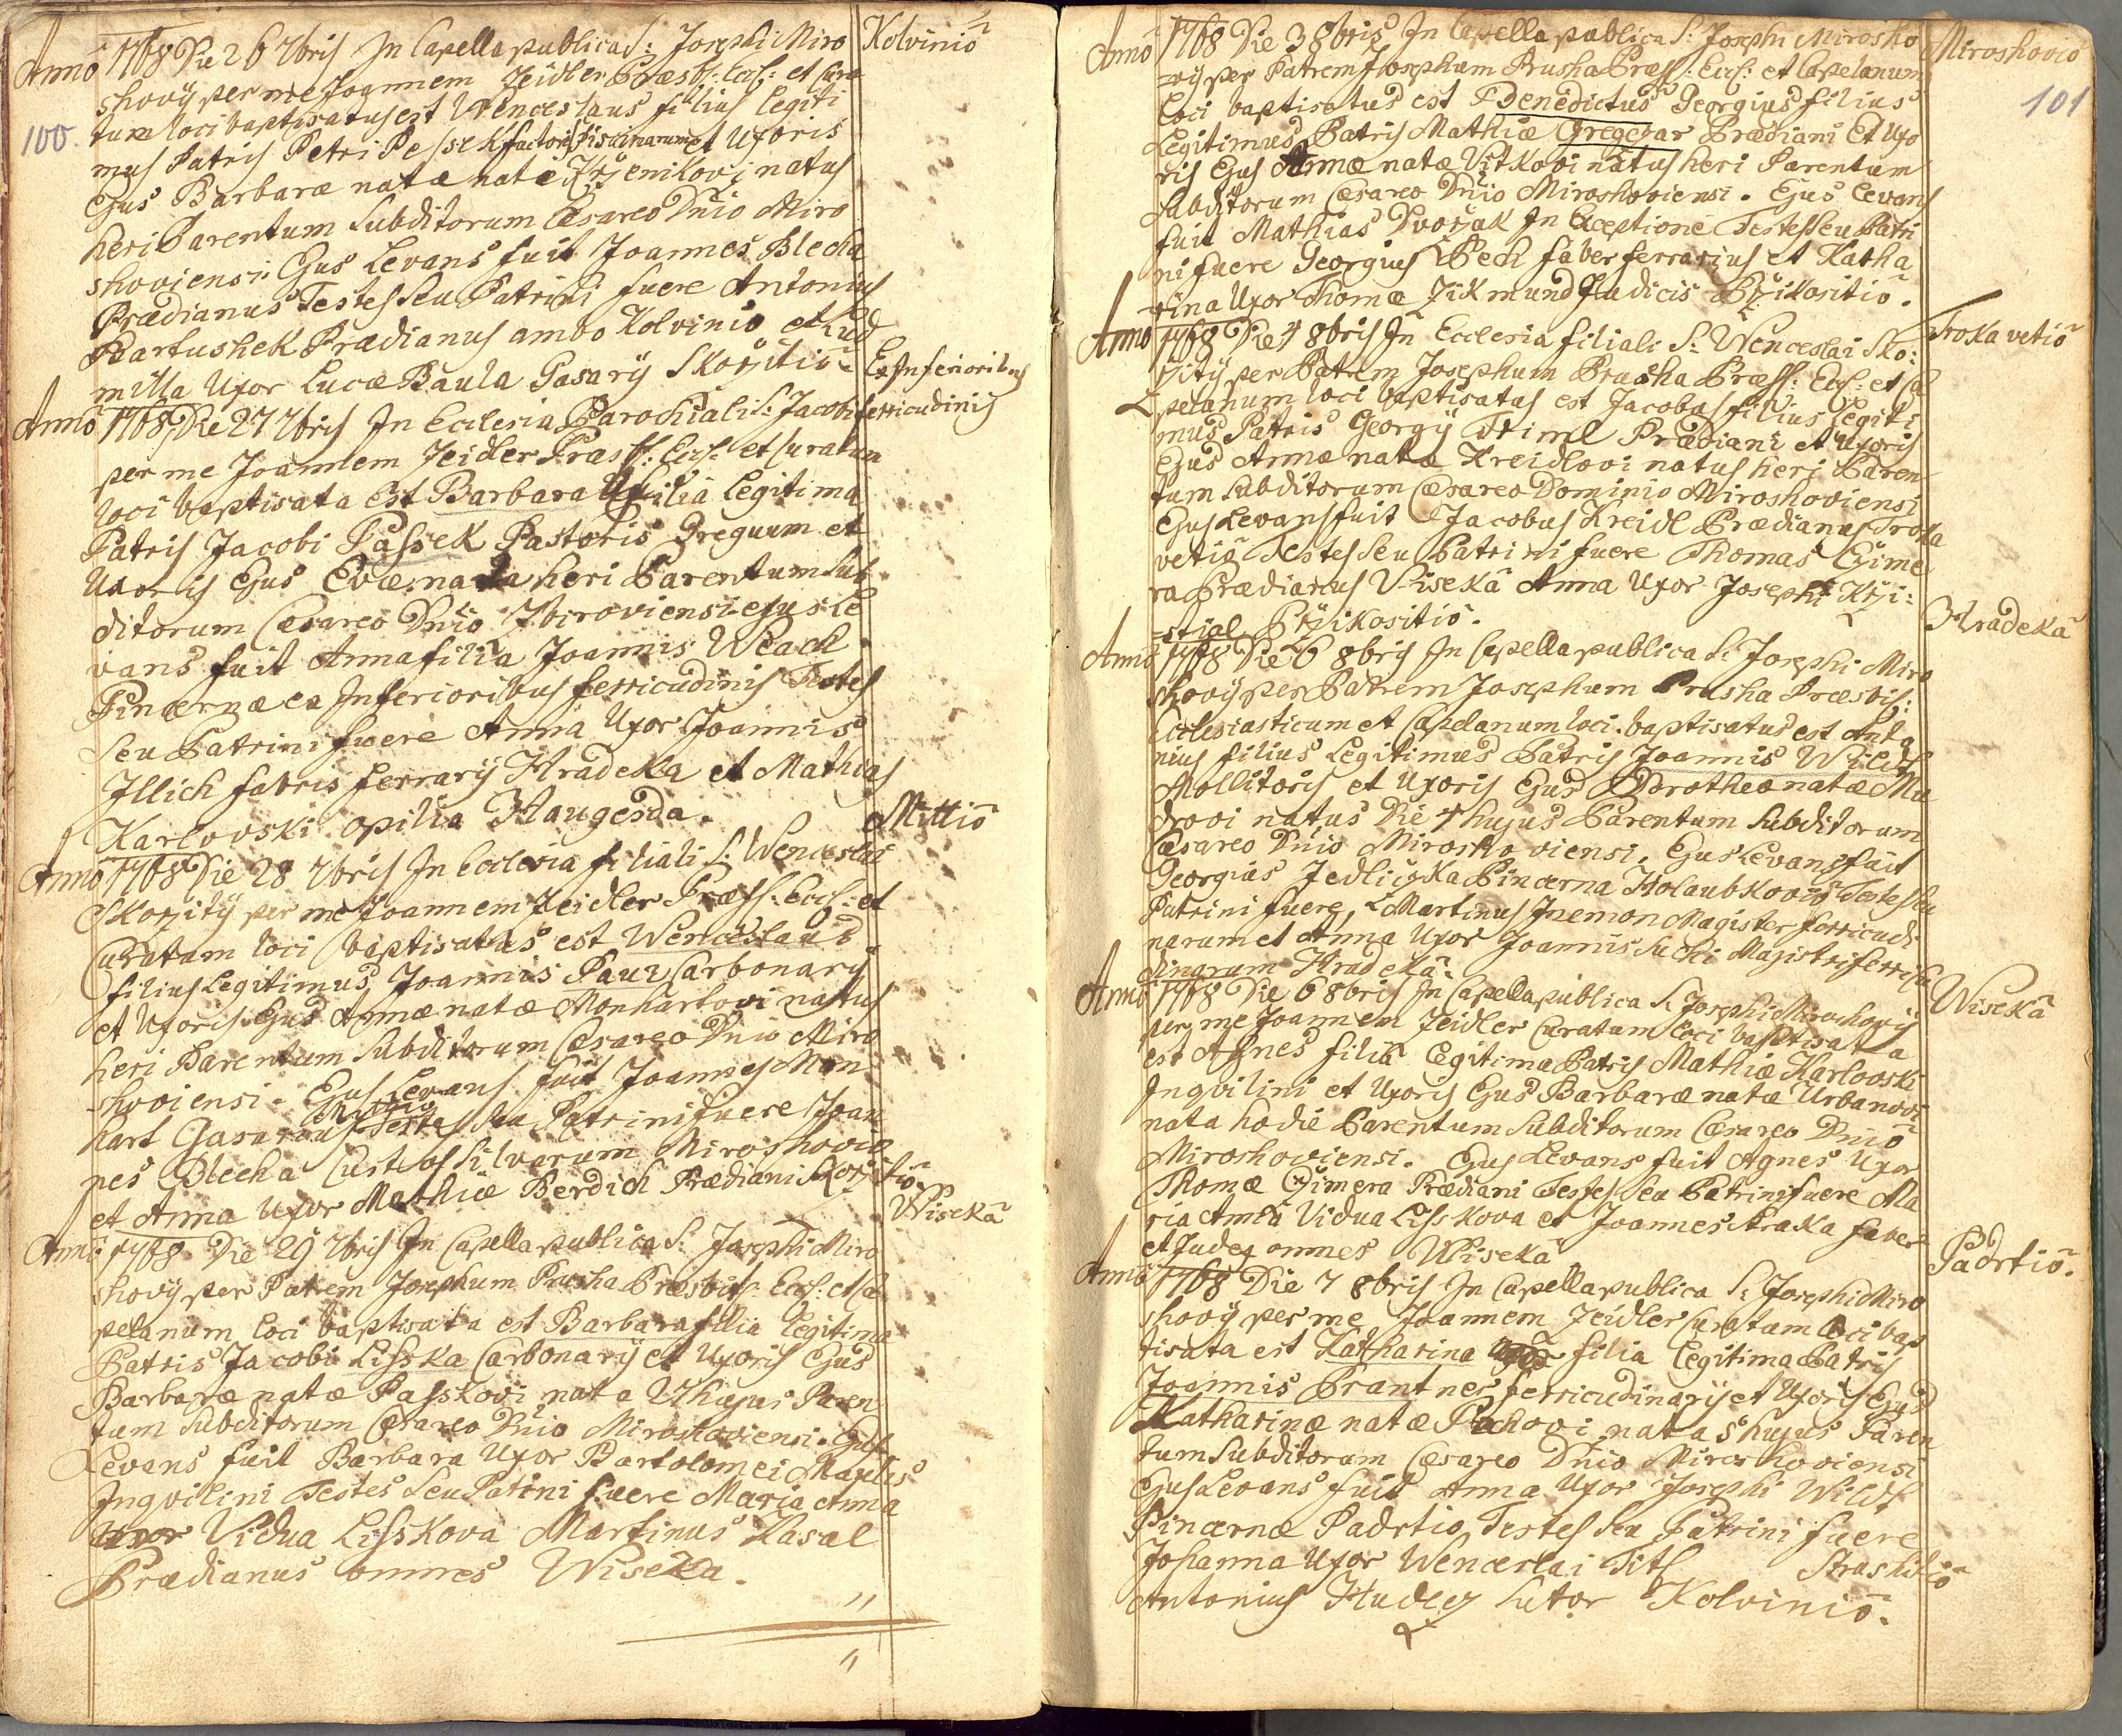 100.
Anno 1768 Die 26 7bris In Capella publica S: Josephi Miro
Kolvinio
shovij per me Joannem Zeidler Præsb: Eccl: et Cura
tum loci baptisatus est Wenceslaus filius legiti
mus Patris Petri Pessek factoris Piscinarum et Uxoris
Ejus Barbaræ natæ natæ Krzenikovi natus
heri Parentum Subditorum Cæsareo Dnio Miro
shoviensi: Ejus Levans fuit Joannes Blecha
Prædianus Testes seu Patrini fuere Antonius
Bartushek Prædianus ambo Kolvinio et Lud
milla Uxor Lucæ Baula Gasarij Skorzitio
Ex Inferioribus
ferricudinis
Anno 1768 Die 27 7bris In Ecclesia Parochiali S: Jacobi
per me Joannem Zeidler Præsb: Eccl: et Curatum
loci baptisata est Barbara filia Legitima
Patris Jacobi Passek Pastoris Greguum et
Uxoris Ejus Evæ nata heri Parentum Sub
ditorum Cæsareo Dnio Zbiroviensi ejus Le
vans fuit Anna filia Joannis Wlach
Pincernæ ex Inferioribus ferricudinis Testes
seu Patrini fuere Anna Uxor Joannis
Illich fabris ferrarij Hradeka et Mathias
Karlovski opilia Haugezda.
Mittio
Anno 1768 Die 28 7bris In Ecclesia filiali S: Wenceslai
Skorzitij per me Joannem Zeidler Præsb: Eccl: et
Curatum loci baptisatus est Wenceslaus
filius Legitimus Joannis Paur Carbonarij
et Uxoris Ejus Annæ natæ Monhartovi natus
heri Parentum Subditorum Cæsareo Dnio Miro
shoviensi. Ejus Levans fuit Joannes Mon
hart Gasarius Mittio Testes seu Patrini fuere Joan
nes Blecha Custos Silvarum Miroshovio
et Anna Uxor Mathiæ Berdich Prædiani Skorzitio
Wiseka
Anno 1768 Die 29 7bris In Capella publica S: Josephi Miro
shovij per Patrem Josephum Prusha Præsbit: Eccl: et Ca
pelanum loci baptisata est Barbara filia legitima
Patris Jacobi Lisska Carbonarij et Uxoris Ejus
Barbaræ natæ Passkovi nata hujus Paren
tum Subditorum Cæsareo Dnio Miroshoviensi. Ejus
Levans fuit Barbara Uxor Bartolomei
Inqvilini Testes seu Patrini fuere Maria Anna
Vidua Lisskova Martinus Kasal
Prædianus omnes Wiseka.
101
Anno 1768 Die 3 8bris In Capella publica S: Josephi Mirosho
Miroshovio
vij per Patrem Josephum Prusha Præsb: Eccl: et Capelanum
loci baptisatus est Benedictus Georgius filius
Legitimus Patris Mathiæ Gregezar Prædiani Et Uxo
ris Ejus Annæ natæ Vitkovi natus heri Parentum
Subditorum Cæsareo Dnio Miroshoviensi. Ejus Levans
fuit Mathias Dvorzak In Exceptione Testes seu Patri
ni fuere Georgius Pech faber ferrarius et Katha
rina Uxor Thomæ Zikmund Judicis Przikositio.
Trokavetio
Anno 1768 Die 4 8bris In Ecclesia filiali S: Wenceslai Sko:
rzitij per Patrem Josephum Prusha Præsb: Eccl: et Ca
pelanum loci baptisatus est Jacobus filius legiti
mus Patris Georgij Triml Prædiani et Uxoris
Ejus Annæ natæ Kreidlovi natus heri Paren
tum Subditorum Cæsareo Dominio Miroshoviensi
Ejus Levans fuit Jacobus Kreidl Prædianus Troka
vetio Testes seu Patrini fuere Thomas Czime
ra Prædianus Wiseka Anna Uxor Josephi Krzi:
stial Przikositio.
Hradeka
Anno 1768 Die 6 8bris In Capella publica S: Josephi Miro
shovij per Patrem Josephum Prusha Præsbij:
Ecclesiasticum et Capelanum loci baptisatus est Anto
nius filius Legitimus Patris Joannis Wildt
Mollitoris et Uxoris Ejus Dorotheæ natæ Mu
drovi natus Die 4 hujus Parentum Subditorum
Cæsareo Dnio Miroshoviensi. Ejus Levans fuit
Georgius Jedliczka Pincerna Holaubkovio Testes seu
Patrini fuere, Martinus Inemon Magister ferricudi
narum et Anna Uxor Joannis Suchi Magistri ferricu
dinarum Hradeka.
Wiseka
Anno 1768 Die 6 8bris In Capella publica S: Josephi Miroshovij
per me Joannem Zeidler Curatum loci baptisata
est Agnes filia Legitima Patris Mathiæ Karlovski
Inqvilini et Uxoris Ejus Barbaræ natæ Urbanovi
nata hodie Parentum Subditorum Cæsareo Dnio
Miroshoviensi. Ejus Levans fuit Agnes Uxor
Thomæ Czimera Prædiani Testes seu Patrini fuere Ma
ria Anna Vidua Lisskova et Joannes Straka faber
et Judex omnes Wiseka
Padrtio.
Anno 1768 Die 7 8bris In Capella publica S: Josephi Miro
shovij per me Joannem Zeidler Curatum loci bap
tisata est Katharina filia Legitima Patris
Joannis Brantner ferricudinarij et Uxoris Ejus
Katharinæ natæ Pachovi nata 5 hujus Paren
tum Subditorum Cæsareo Dnio Miroshoviensi
Ejus Levans fuit Anna Uxor Josephi Wildt
Pincernæ Padrtio, Testes seu Patrini fuere
Johanna Uxor Wenceslai Titl Strashitio
Antonius Hudez Sutor Kolvinio.